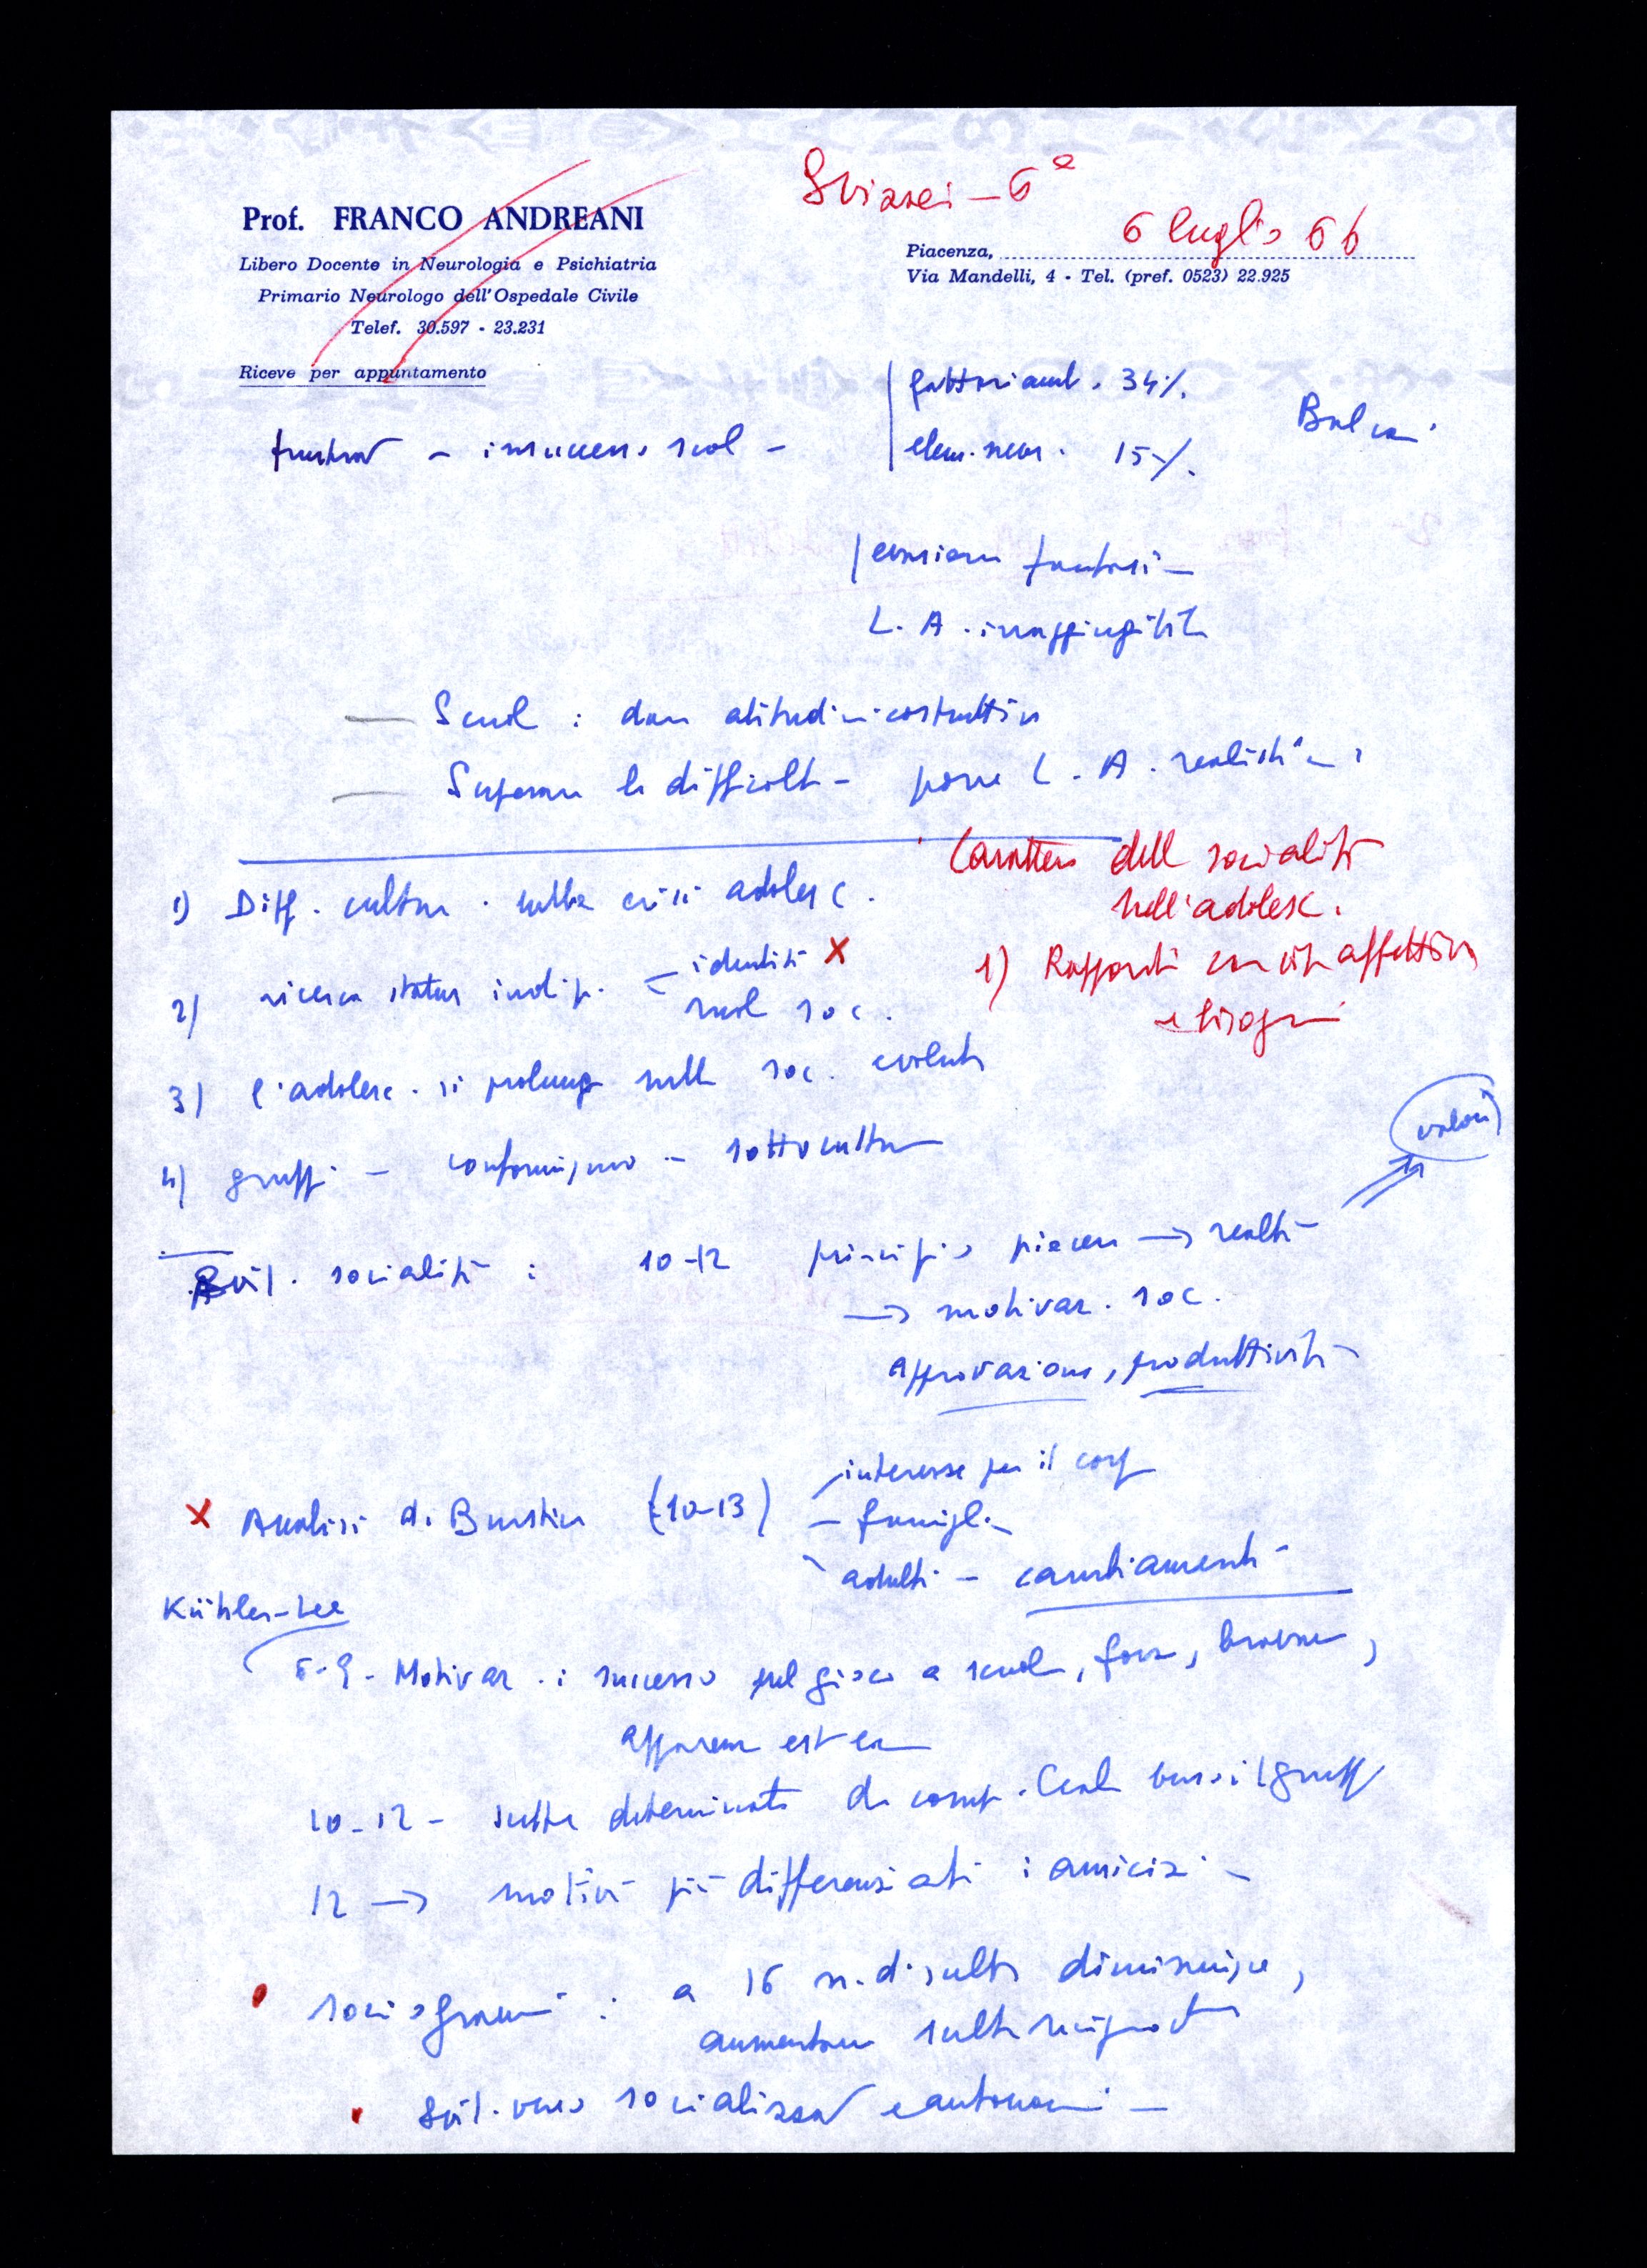 Prof. FRANCO ANDREANI
Libero Docente in Neurologia e Psichiatria
Primario Neurologo dell'Ospedale Civile
Telef. 30.597 - 23.231
Riceve per appuntamento
6ª
6 luglio 66
Piacenza,
Via Mandelli, 4 - Tel. (pref. 0523) 22.925
fattori amb. 34%.
elem. neur. 15%.
insuccesso scol -
L. A. irraggiungibili
Scuol : dare attitudini costruttive
Superare le difficolt - porre L. A. realistic
Caratteri dell socialità
nell'adolesc.
1) Rapporti con vita affettiva
e bisogni
1) Diff. cultur. sulla crisi adolesc.
2) ricerca status indip. - identità X
ruol soc.
3) l'adolesc. si prolunga nelle soc. evolute
4) gruppi - conformismo - sottocultura
valori
Svil. socialità : 10-12 principio piacere → realtà
→ motivaz. soc.
Approvazione, produttività
X Analisi di (10-13) interesse per il corpo
- famiglia
adulti - cambiamenti
6-9 - Motivaz. : successo nel gioco a scuola, forza, bravura,
apparenza est
10-12 - scelte determinate da comp. verso il gruppo
12 → motivi più differenziati : amicizi
sociogrammi : a 16 n. di scelte diminuisce,
aumentano scelte reciproche
Svil. verso socializzaz e autonomi -